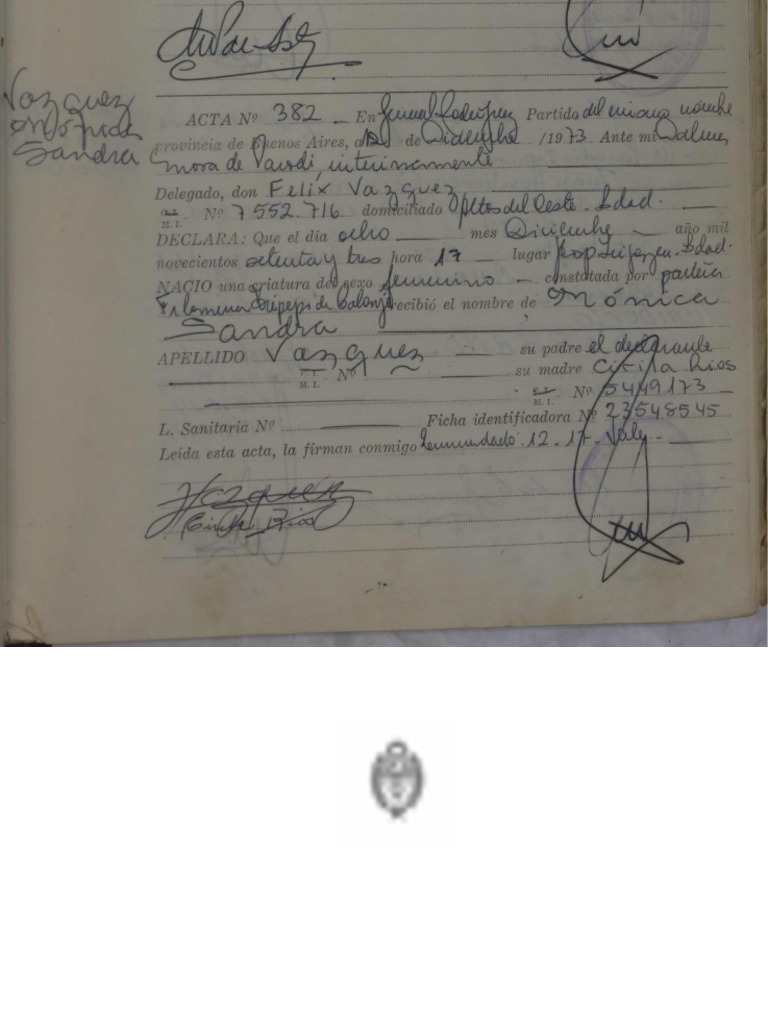 Vazquez
Mónica
Sandra
ACTA Nº 382 - En General Rodríguez Partido del mismo nombre
provincia de Buenos Aires, a 12 de Diciembre /1973 Ante mi
mora de interinamente
Delegado, don Felix Vazquez
M. I. Nº 7552.716 domiciliado Aptos del Oeste. Ldad.
DECLARA: Que el día ocho mes Diciembre año mil
novecientos setenta y tres hora 17 - lugar Ldad.
NACIO una criatura del sexo femenino - constatada por partera
Filomena de recibió el nombre de Mónica
Sandra
APELLIDO Vazquez su padre el declarante
C. I. M. I. Nº su madre Cirila Rios
C. I. M. I. Nº 5449173
L. Sanitaria Nº Ficha identificadora Nº 23548545
Leída esta acta, la firman conmigo Enmendado: 12-17- Vale -
Vazquez
Cirila Rios